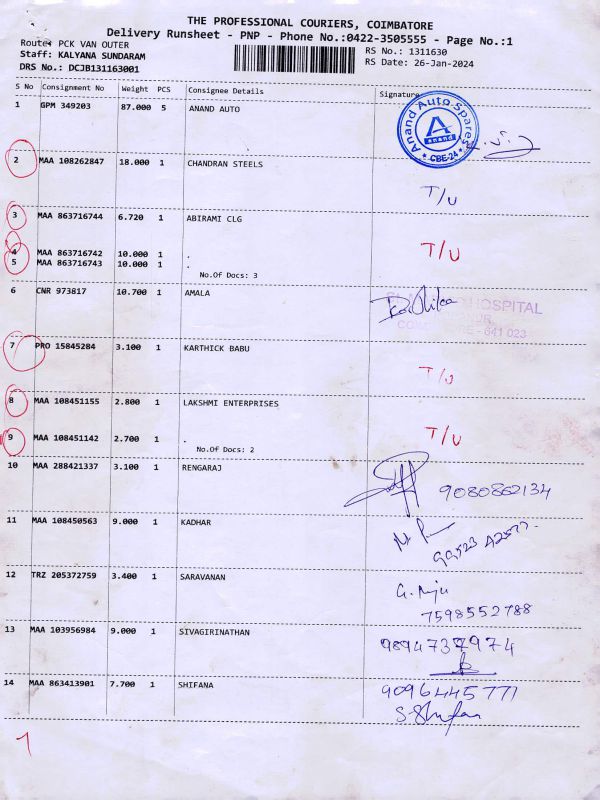 THE PROFESSIONAL COURIERS, COIMBATORE
Delivery Runsheet - PNP - Phone No.:0422-3505555 - Page No.:1
Route: PCK VAN OUTER
RS No.: 1311630
Staff: KALYANA SUNDARAM
RS Date: 26-Jan-2024
DRS No.: DCJB131163001
S No Consignment No Weight PCS Consignee Details Signature
1 GPM 349203 87.000 5 ANAND AUTO
Anand Auto Spares
A
anand
* CBE-24 *
2 MAA 108262847 18.000 1 CHANDRAN STEELS
T/U
3 MAA 863716744 6.720 1 ABIRAMI CLG
4 MAA 863716742 10.000 1 .
T/U
5 MAA 863716743 10.000 1 .
No.Of Docs: 3
6 CNR 973817 10.700 1 AMALA
HOSPITAL
641 023
7 PRO 15845284 3.100 1 KARTHICK BABU
T/U
8 MAA 108451155 2.800 1 LAKSHMI ENTERPRISES
T/U
9 MAA 108451142 2.700 1 .
No.Of Docs: 2
10 MAA 288421337 3.100 1 RENGARAJ
9080862134
11 MAA 108450563 9.000 1 KADHAR
12 TRZ 205372759 3.400 1 SARAVANAN
7598552788
13 MAA 103956984 9.000 1 SIVAGIRINATHAN
14 MAA 863413901 7.700 1 SHIFANA
9096445771